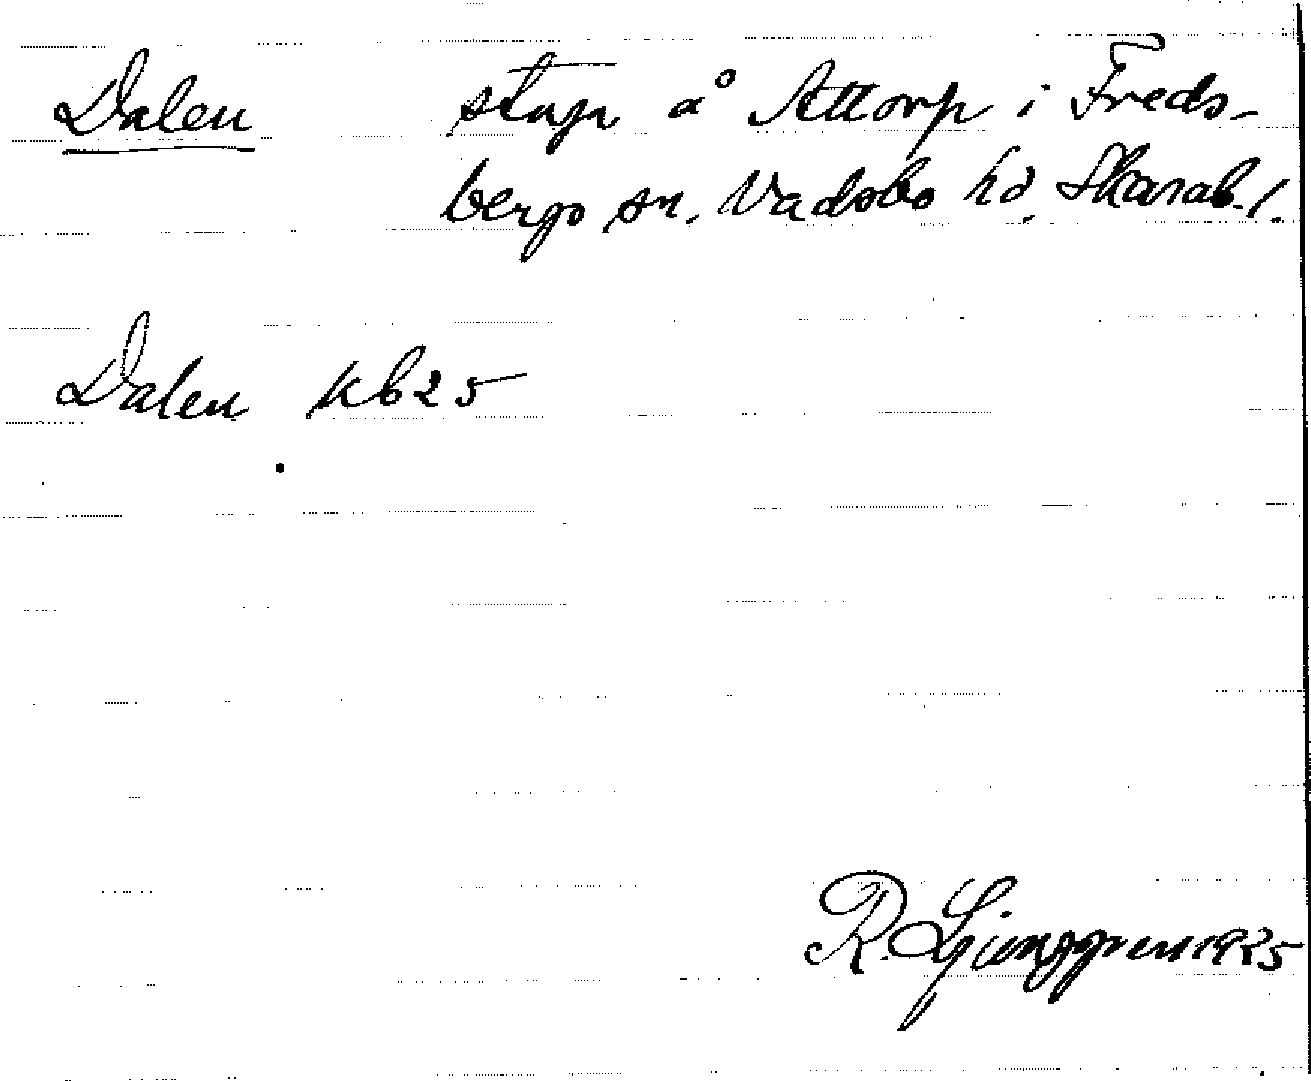 Dalen stugn å Attorp i Freds-
bergs sn. Vadsbo hd. Skarab. l.
Dalen kb 25
R. Ljunggren 1925